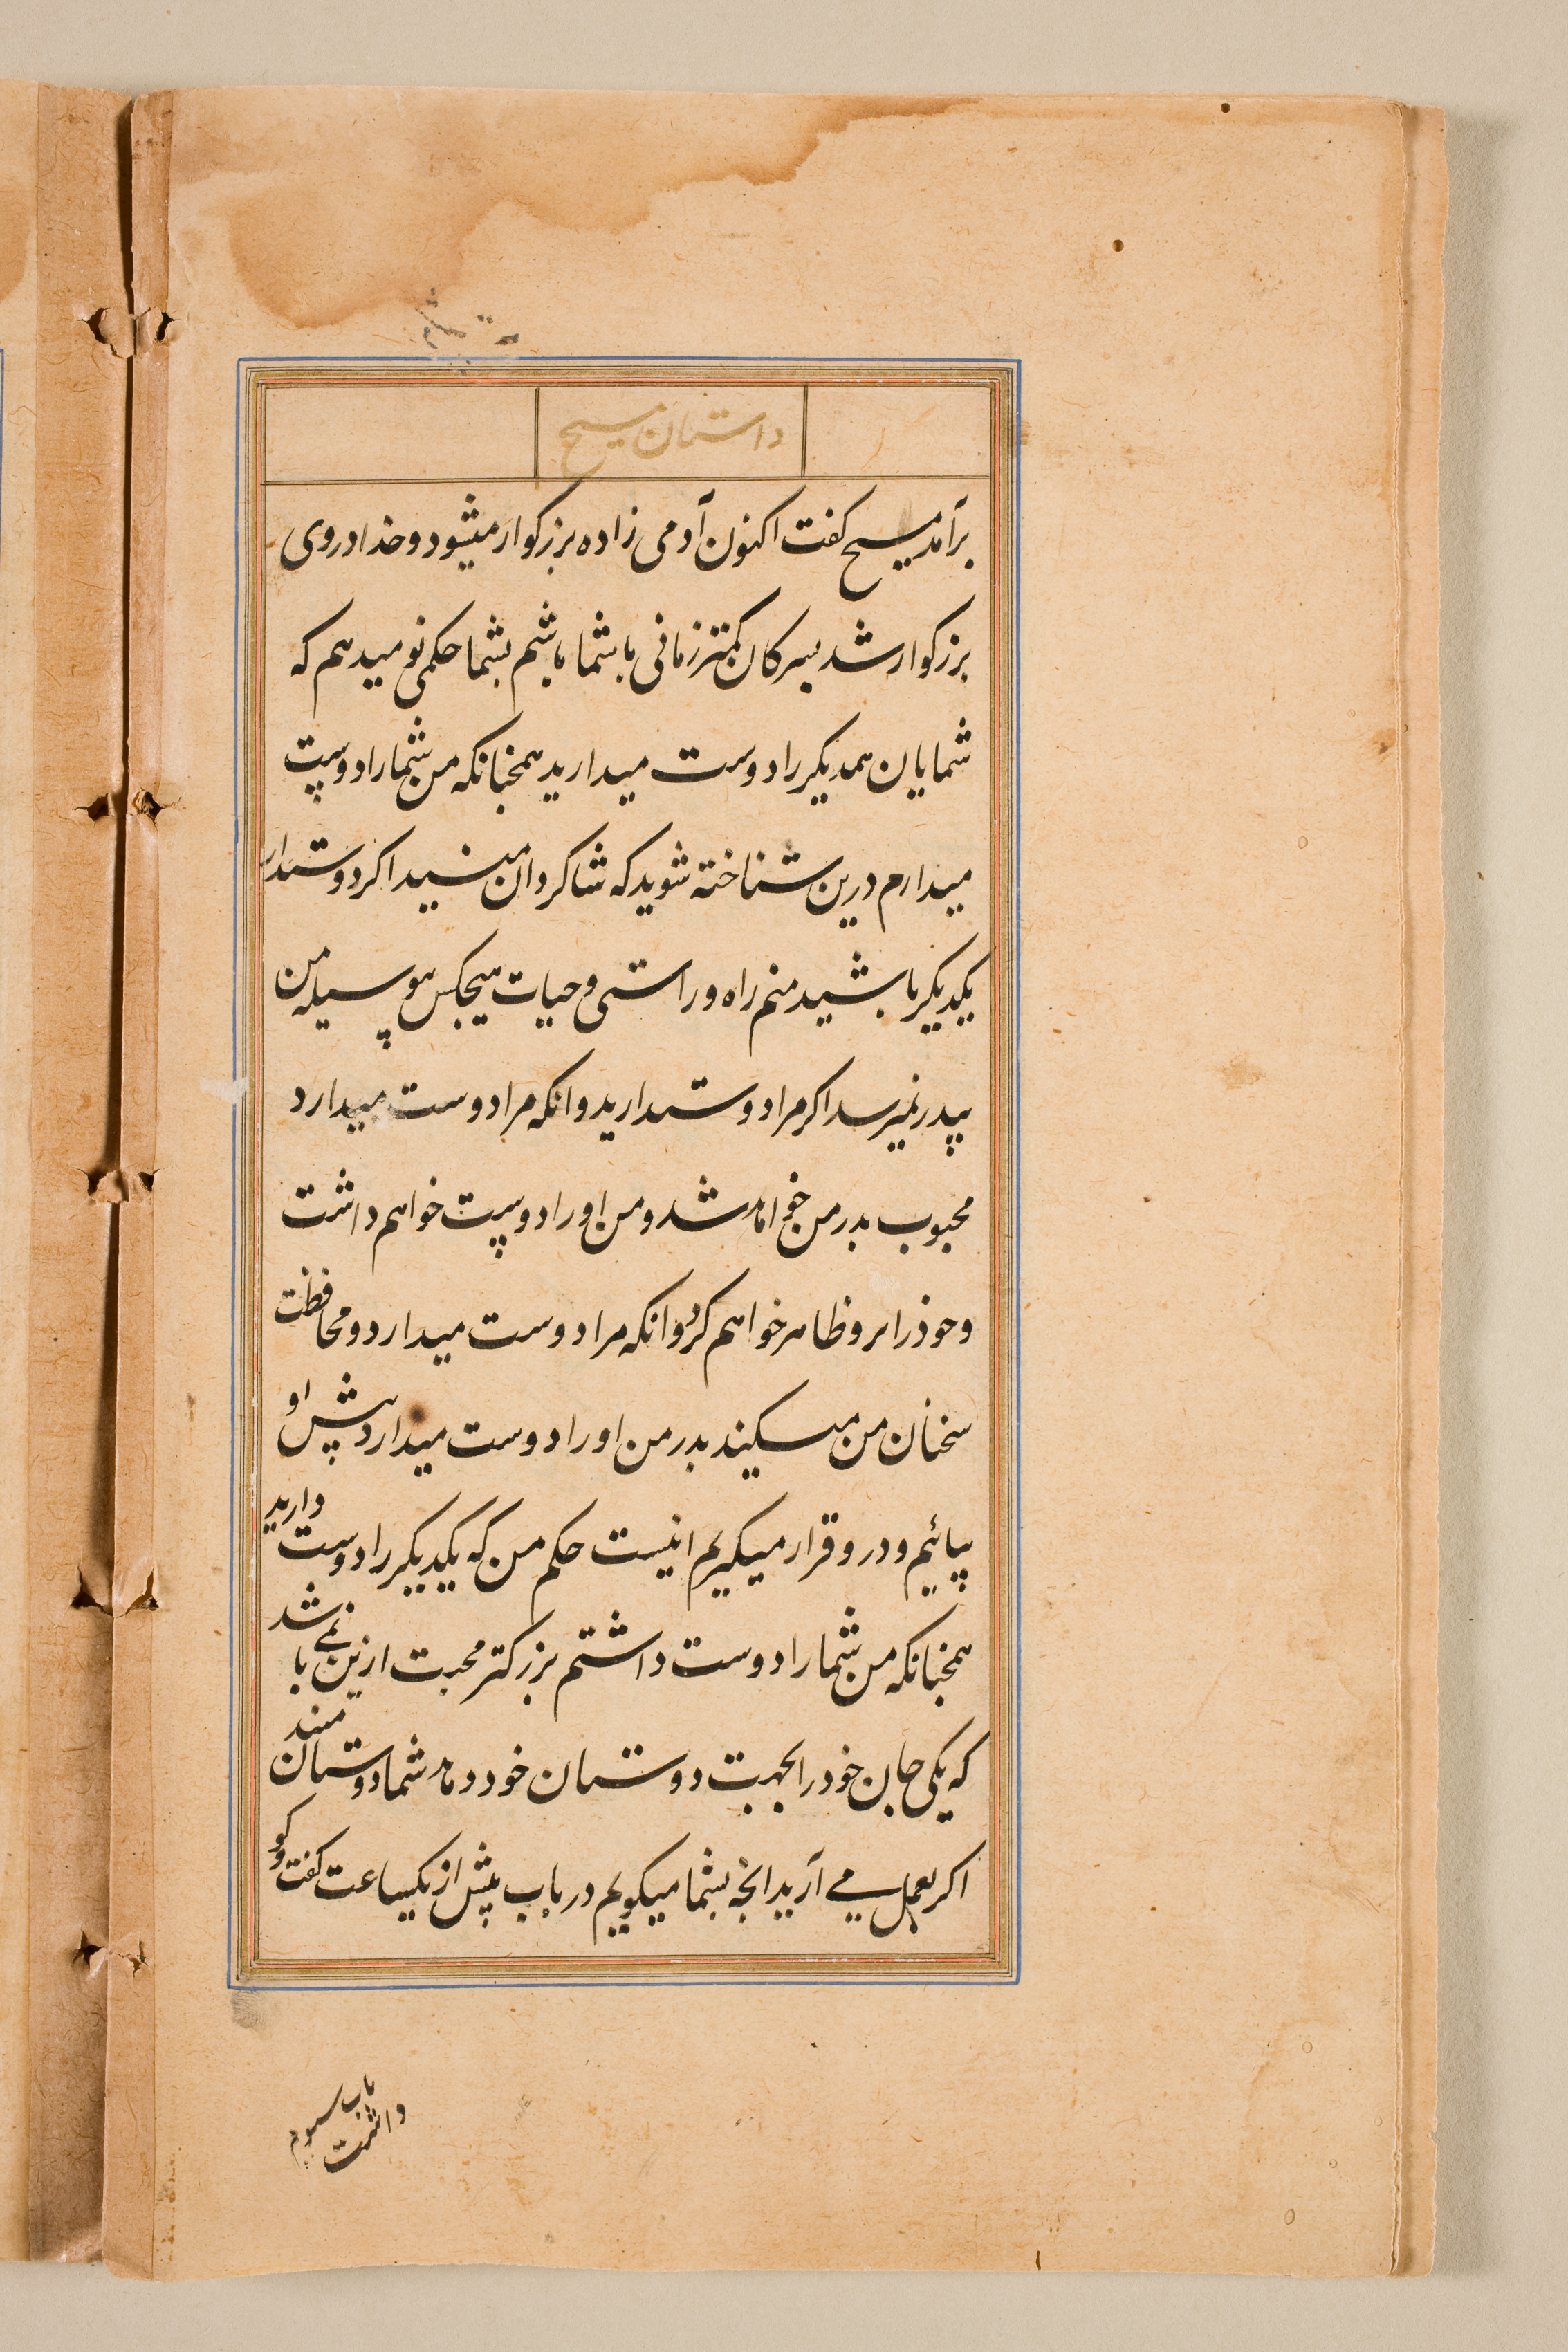 داستان مسیح
برآمد مسیح کفت اکنون آدمی زاده بزرکوار میشود و خدا در وی
بزرکوار شد پسرکان کمتر زمانی با شما باشم بشما حکمی نو میدهم که
شمایان همدیکر را دوست میدارید همچنانکه من شما را دوست
میدارم درین شناخته شوید که شاکردان منید اکر دوستدار
یکدیکر باشید منم راه و راستی و حیات هیچکس بوسیله من
بپدر نمیرسد اکر مرا دوستدارید وانکه مرا دوست میدارد
محبوب پدر من خواهد شد و من او را دوست خواهم داشت
و خود را برو ظاهر خواهم کرد وانکه مرا دوست میدارد و محافظت
سخنان من میکند پدر من او را دوست میدارد پیش او
بیائیم و درو قرار میکیریم اینست حکم من که یکدیکر را دوست دارید
همچنانکه من شما را دوست داشتم بزرکتر محبت ازین نمی باشد
که یکی جان خود را بجهت دوستان خود دهد شما دوستان منید
اکر بعمل می آرید انچه بشما میکویم درباب پیش از یکساعت کفت و کو
باب سیوم
داشت